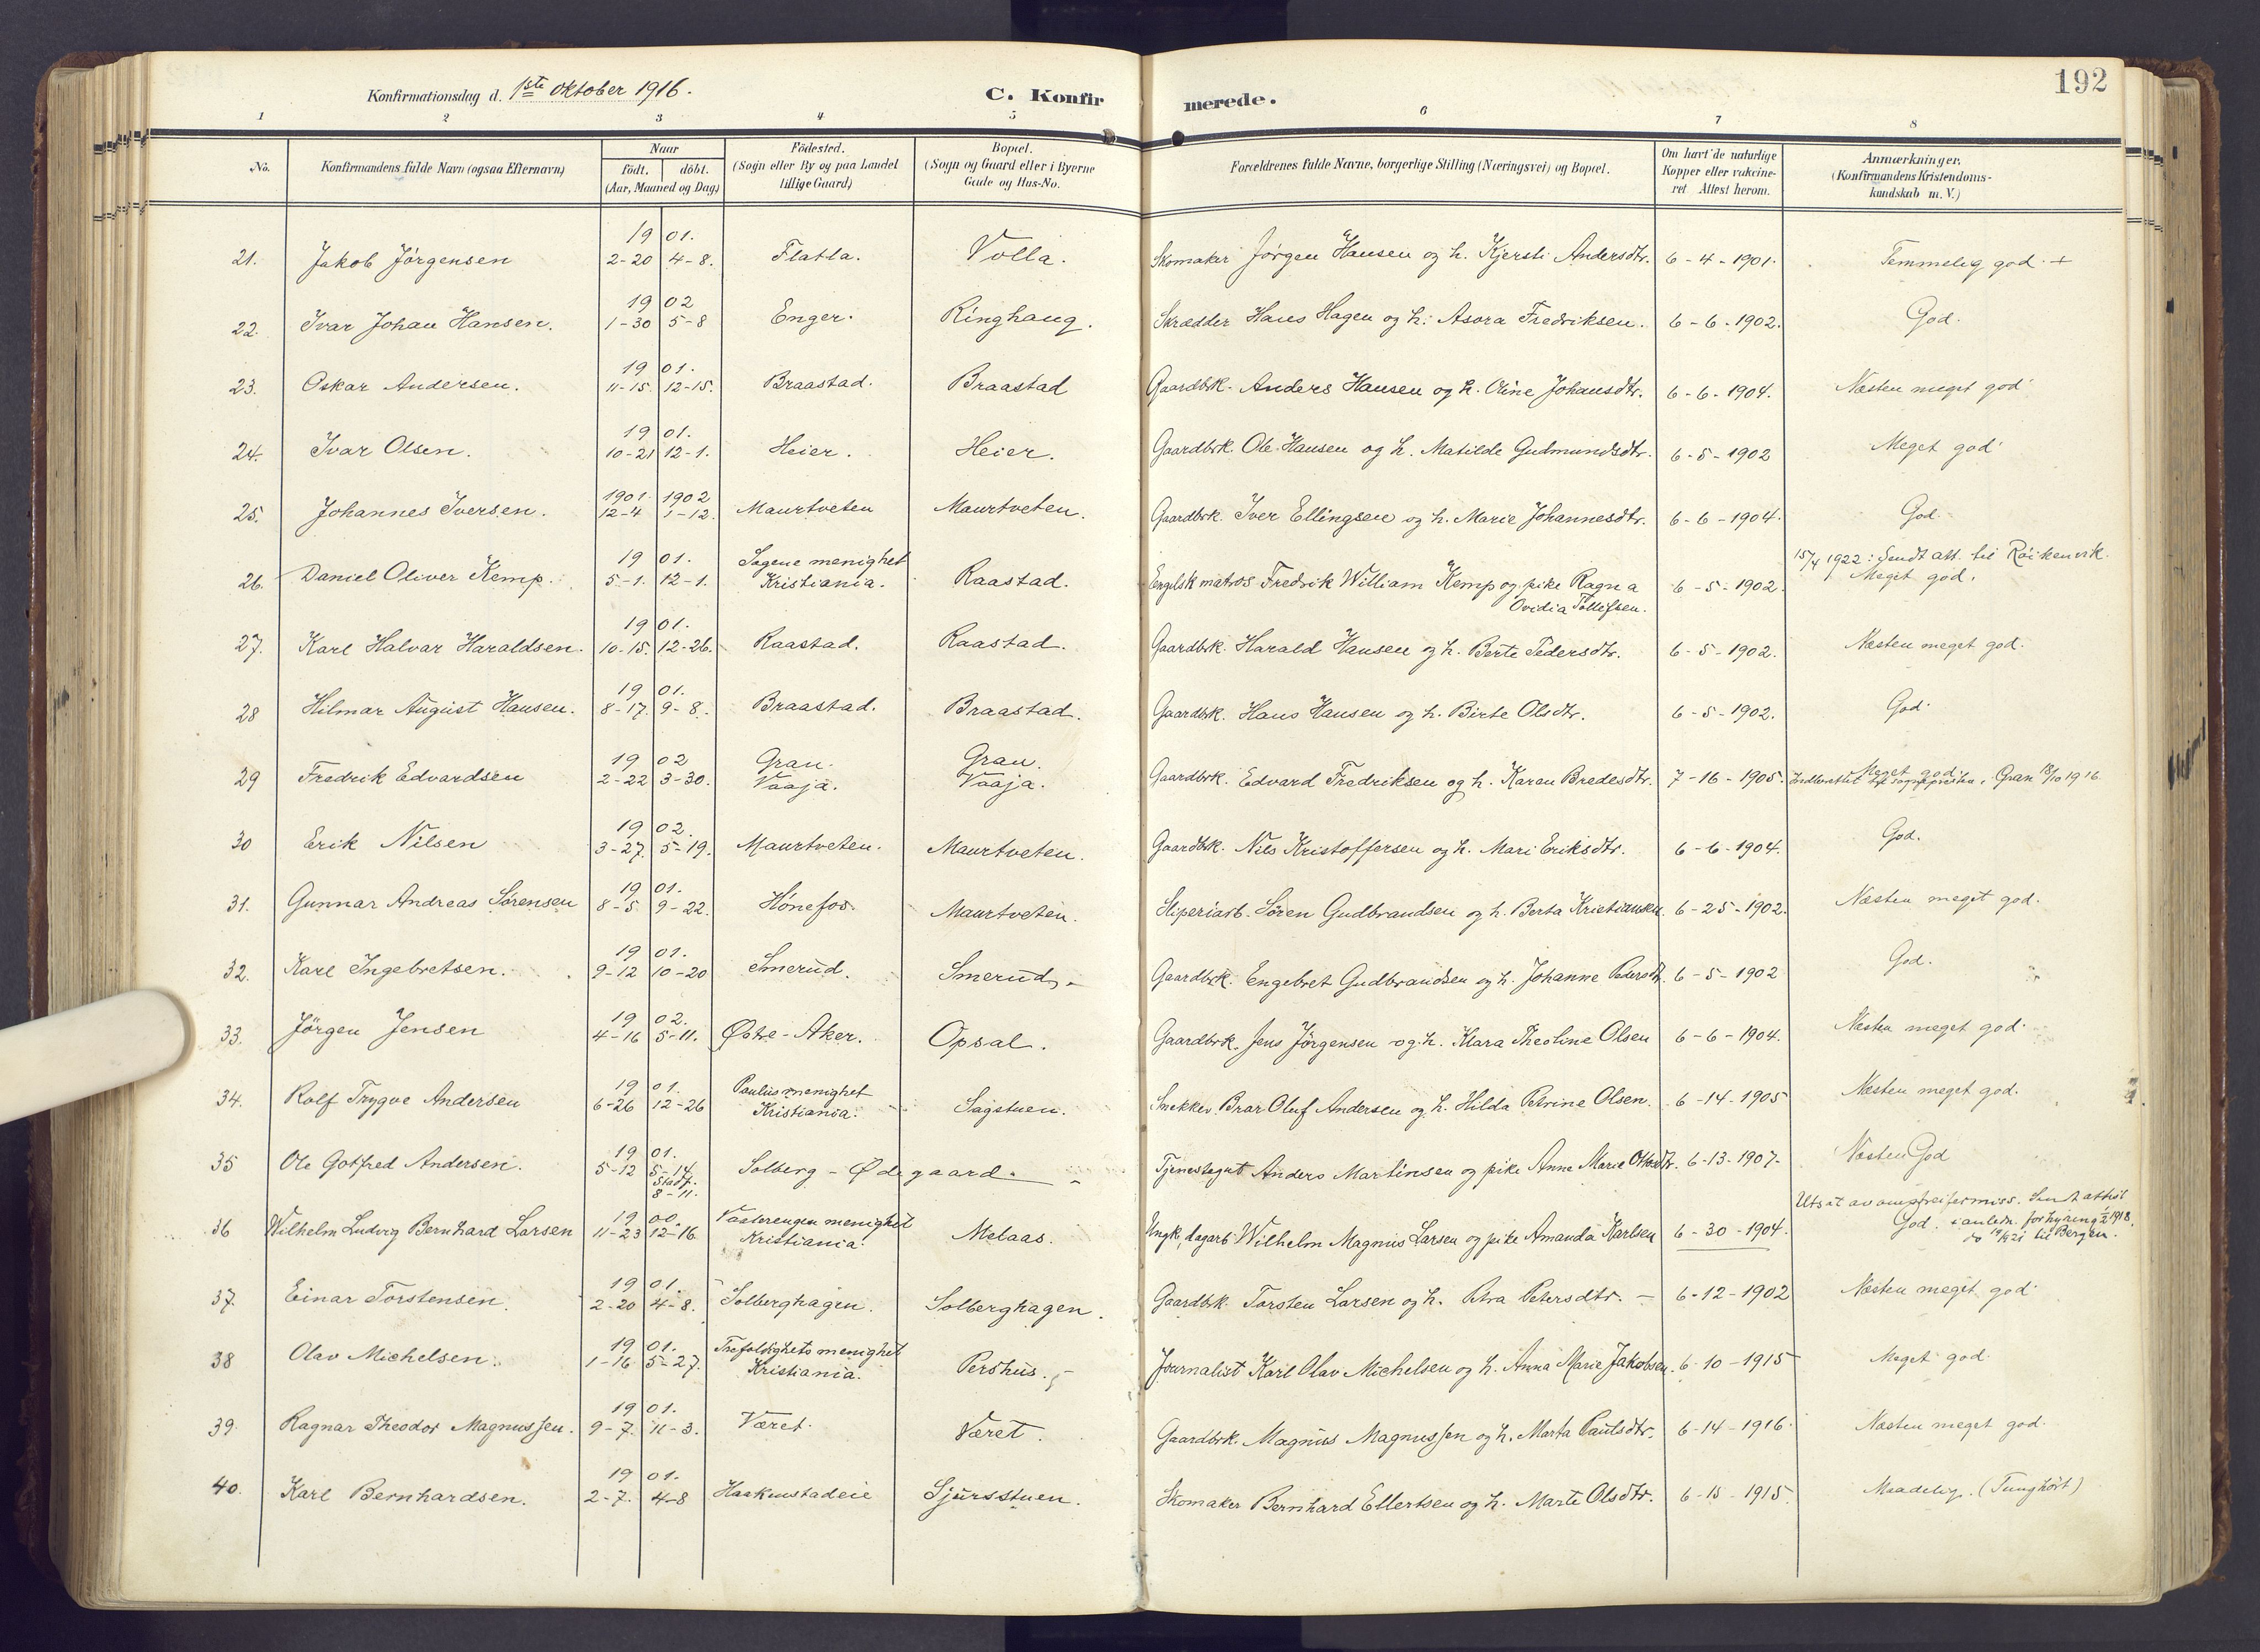 192
Konfirmationsdag d. 1ste oktober 1916.
C. Konfirmerede.
1 2 3 4 5 6 7 8
No. | Konfirmandens fulde Navn (ogsaa Efternavn) | Naar födt. döbt. (Aar, Maaned og Dag) | Födested. (Sogn eller By og paa Landet tillige Gaard) | Bopæl. (Sogn og Gaard eller i Byerne Gade og Hus-No. | Forældrenes fulde Navne, borgerlige Stilling (Næringsvei) og Bopæl. | Om havt de naturlige Kopper eller vakcineret Attest herom. | Anmærkninger. (Konfirmandens Kristendomskundskab m. V.)
21. Jakob Jörgensen | 1901. 2-20 | 4-8. | Flatla. | Volla. | Skomaker Jörgen Hansen og h. Kjersti Andersdtr. | 6-4-1901. | Temmelig god. +
22. Ivar Johan Hansen. | 1902 1-30 | 5-8 | Enger. | Ringhaug. | Skrædder Hans Hagen og h. Asora Fredriksen. | 6-6-1902. | God.
23. Oskar Andersen. | 1901. 11-15. | 12-15. | Braastad. | Braastad | Gaardbrk. Anders Hansen og h. Oline Johansdtr. | 6-6-1904. | Næsten meget god
24. Ivar Olsen. | 1901. 10-21 | 12-1. | Heier. | Heier. | Gaardbrk. Ole Hansen og h. Matilde Gudmundsdtr. | 6-5-1902 | Meget god
25. Johannes Iversen. | 1901 12-4 | 1902 1-12. | Maurtveten | Maurtveten. | Gaardbrk. Iver Ellingsen og h. Marie Johannesdtr. | 6-6-1904. | God.
26. Daniel Oliver Kemp. | 1901. 5-1. | 12-1. | Sagene menighet Kristiania. | Raastad. | Engelsk matros Fredrik William Kemp og pike Ragna Ovidia Tollefsen. | 6-5-1902. | 15/4 1922: Sendt att. til Röikenvik. Meget god.
27. Karl Halvar Haraldsen. | 1901. 10-15. | 12-26. | Raastad. | Raastad. | Gaardbrk. Harald Hansen og h. Berte Pedersdtr. | 6-5-1902. | Næsten meget god.
28 Hilmar August Hansen. | 1901. 8-17. | 9-8. | Braastad. | Braastad. | Gaardbrk. Hans Hansen og h. Birte Olsdtr. | 6-5-1902. | God.
29 Fredrik Edvardsen | 1902 2-22 | 3-30. | Gran. Vaaja. | Gran. Vaaja. | Gaardbrk. Edvard Fredriksen og h. Karen Bredesdtr. | 7-16-1905. | Meget god. Indberettet til sogneprésten i Gran 18/10 1916
30 Erik Nilsen | 1902. 3-27. | 5-19. | Maurtveten. | Maurtveten. | Gaardbrk. Nils Kristoffersen og h. Mari Eriksdtr. | 6-6-1904. | God.
31. Gunnar Andreas Sörensen | 1901. 8-5 | 9-22. | Hönefos. | Maurtveten. | Sliperiarb. Sören Gudbrandsen og h. Berta Kristiansen. | 6-25-1902. | Næsten meget god.
32. Karl Ingebretsen. | 1901. 9-12 | 10-20 | Smerud. | Smerud. | Gaardbrk. Engebret Gudbrandsen og h. Johanne Pedersdtr. | 6-5-1902 | God.
33. Jörgen Jensen | 1902. 4-16 | 5-11. | Østre-Aker. | Opsal. | Gaardbrk. Jens Jörgensen og h. Klara Theoline Olsen | 6-6-1904. | Næsten meget god.
34. Rolf Trygve Andersen | 1901. 6-26 | 12-26 | Paulus menighet Kristiania. | Sagstuen. | Snekker Brar Oluf Andersen og h. Hilda Petrine Olsen. | 6-14-1905 | Næsten meget god.
35 Ole Gotfred Andersen. | 1901. 5-12 | 5-14. Stadf. 8-11. | Solberg-Ødegaard. | Tjenestegut Anders Martinsen og pike Anne Marie Ottosdtr. | 6-13-1907. | Næsten God
36 Wilhelm Ludvig Bernhard Larsen | 1900. 11-23 | 12-16. | Vaalerengen menighet Kristiania. | Melaas. | Ungk., dagarb. Wilhelm Magnus Larsen og pike Amanda Karlsen | 6-30-1904. | Sendt attest God. i anledn. forhyring 1/2 1918. do 19/4 21 til Bergen.
37. Einar Torstensen. | 1901. 2-20 | 4-8. | Solberghagen. | Solberghagen. | Gaardbrk. Torsten Larsen og h. Petra Petersdtr. | 6-12-1902 | Næsten meget god
38 Olav Michelsen. | 1901. 1-16 | 5-27. | Trefoldighets menighet Kristiania. | Pershus. | Journalist Karl Olav Michelsen og h. Anna Marie Jakobsen. | 6-10-1915 | Meget god.
39. Ragnar Theodor Magnussen. | 1901. 9-7. | 11-3. | Været. | Været. | Gaardbrk. Magnus Magnussen og h. Marta Paulsdtr. | 6-14-1916. | Næsten meget god.
40. Karl Bernhardsen. | 1901. 2-7. | 4-8 | Haakenstadeie | Sjursstuen. | Skomaker Bernhard Ellertsen og h. Marte Olsdtr. | 6-15-1915. | Maadelig. (Tunghört)